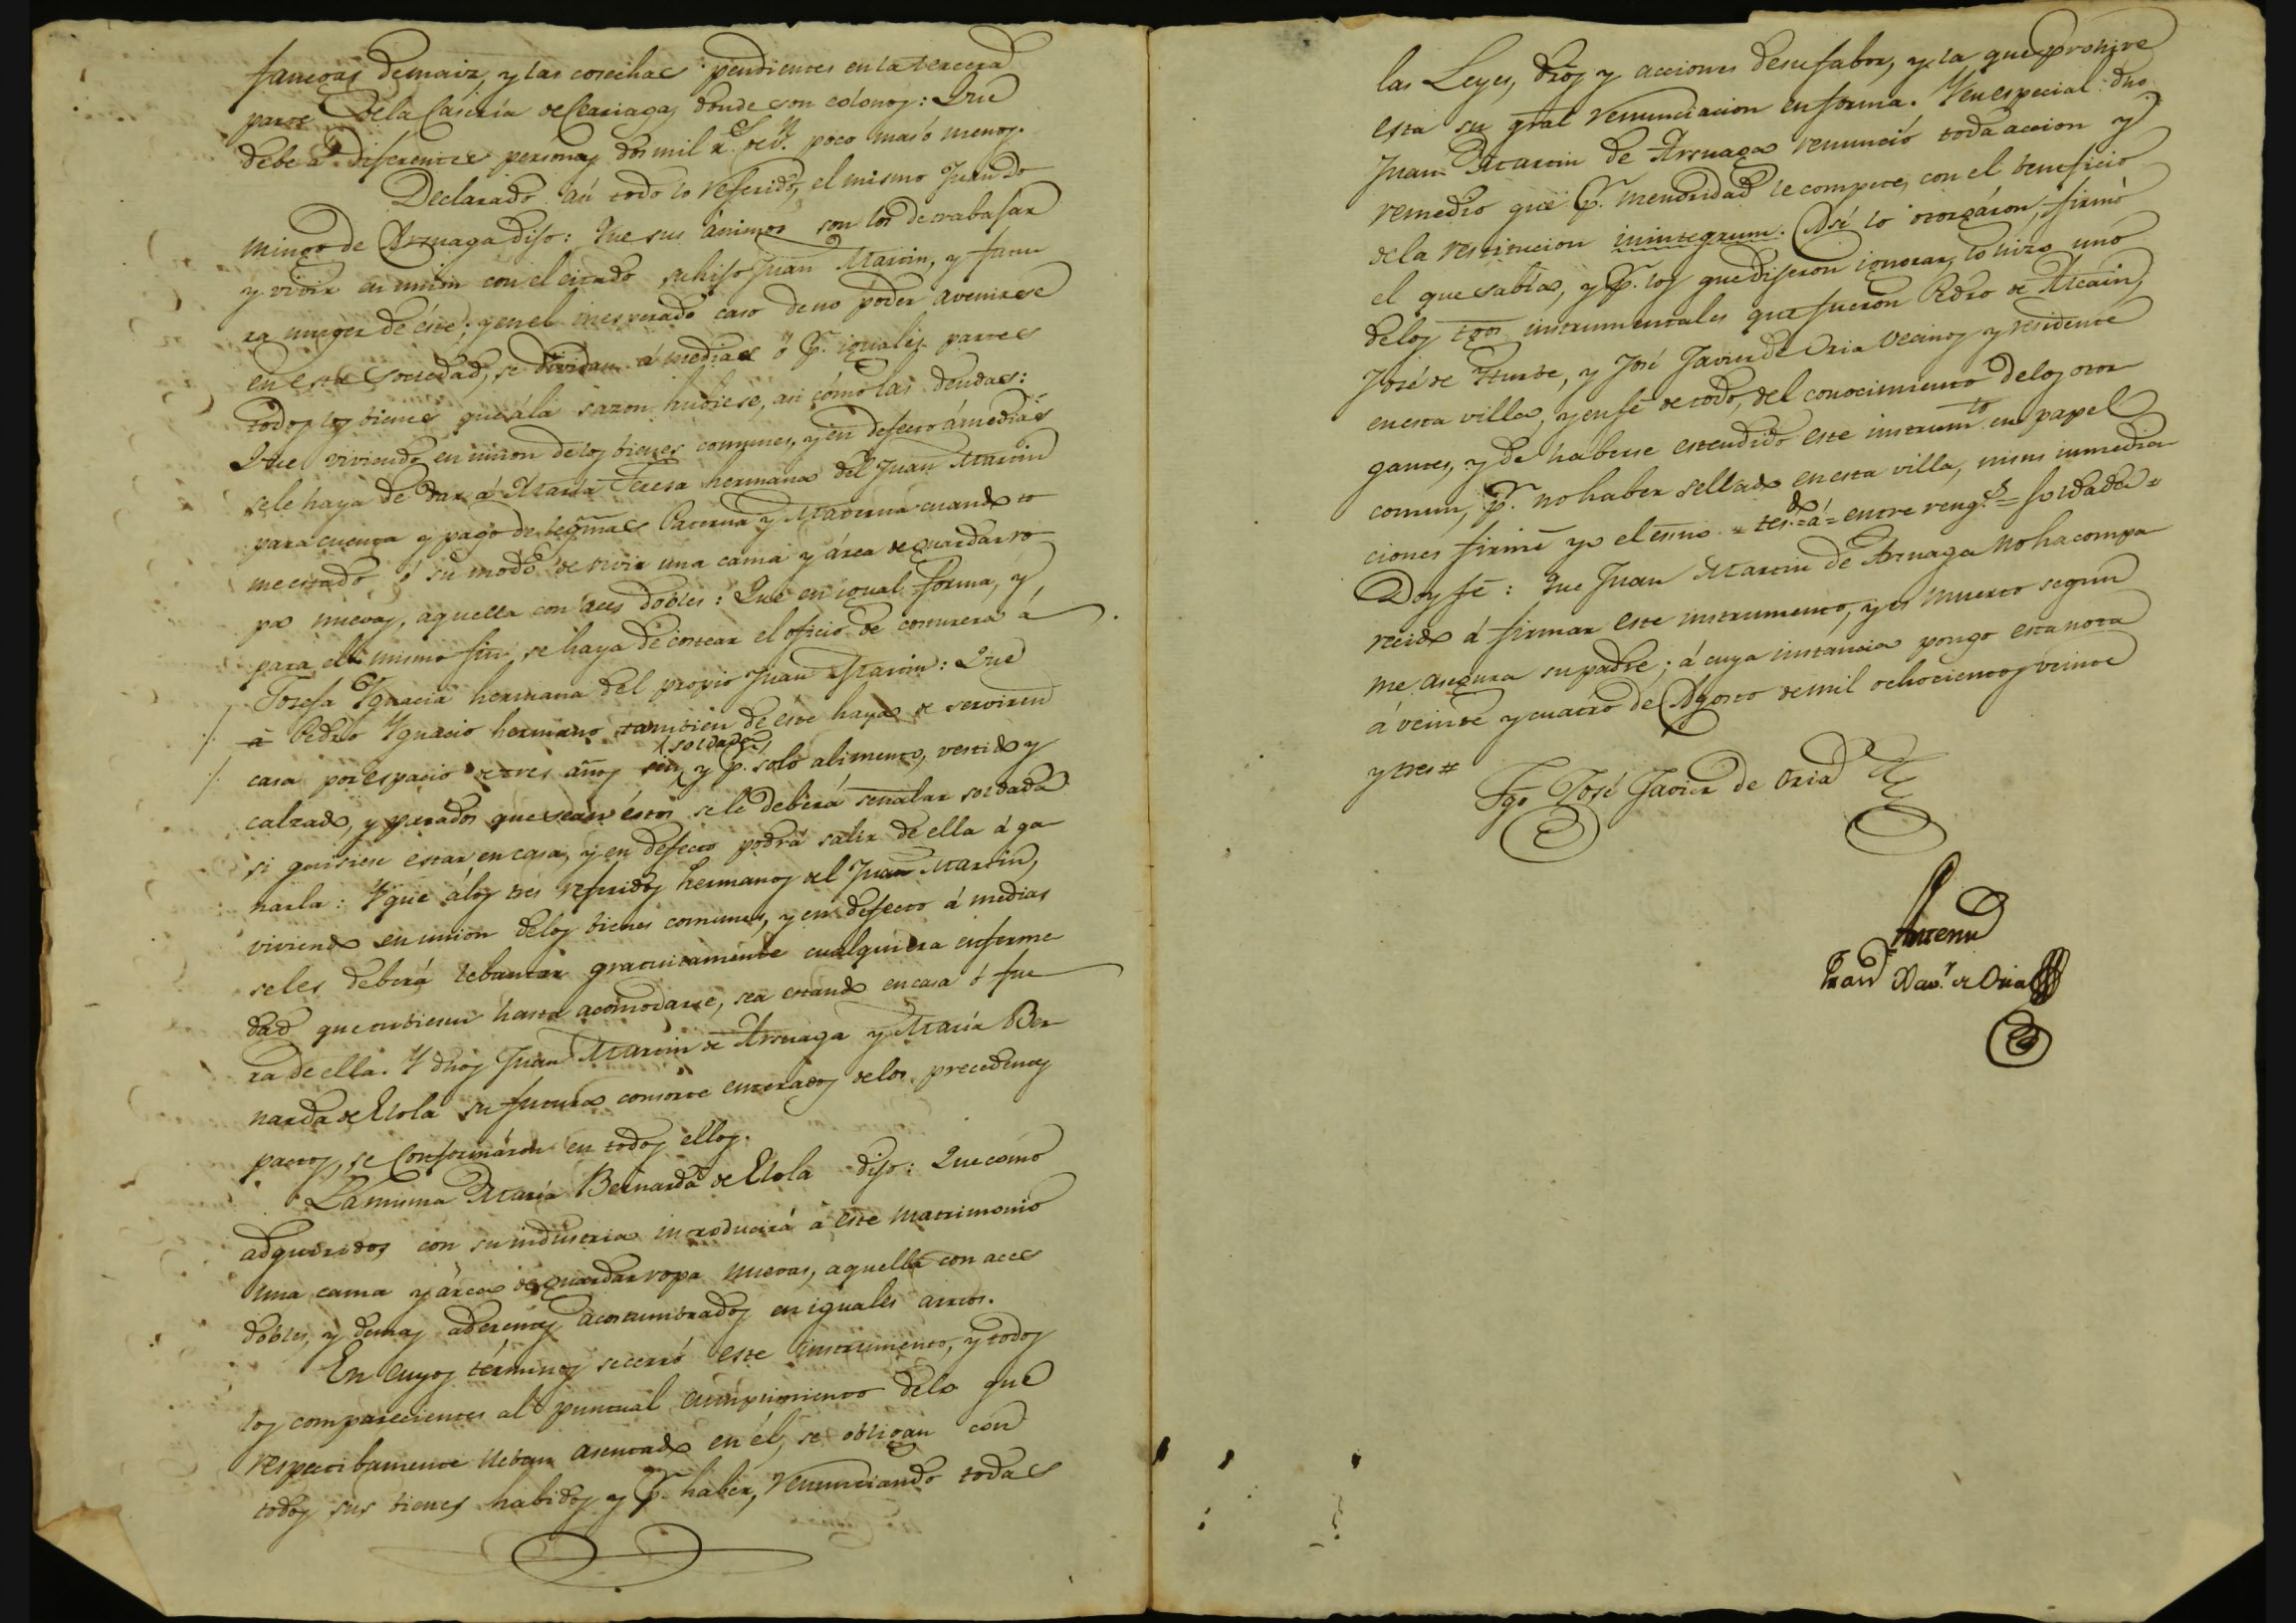 fanegas de maiz, y las cosechas pendientes en la tercera
parte de la Casería de Ceariagas donde son colonos: Que
debe a diferentes personas dos mil r.s de v.n poco mas ó menos.
Declarado así todo lo referido, el mismo Juan Do
mingo de Arsuaga dijo: Que sus ánimos son los de trabajar
y vivir en union con el citado su hijo Juan Martin, y futu
ra muger de éste; y en el inesperado caso de no poder avenirse
en esta sociedad, se dividan á medias ó p.r iguales partes
todos los bienes que á la sazon hubiese, asi cómo las deudas:
Que viviendo en union de los bienes comunes, y en defecto á medias
se le haya de dar á María Teresa hermana del Juan Martin
para cuenta y pago de legmas Paterna y Materna cuando to
me estado ó su modo de vivir una cama y árca de guardar ro
pa nuevas, aquella con aces dobles: Que en igual forma, y
para el mismo fin se haya de costear el oficio de costurera á
Josefa Ygnacia hermana del propio Juan Martin: Que
á Pedro Ygnacio hermano tambien de éste haya de servir en
casa por espacio de tres años sin (soldada) y p.r solo alimento, vestido y
calzado, y pasados que sean éstos se le deberá señalar soldada
si quisiese estar en casa, y en defecto podrá salir de ella á ga
narla: Y que á los tres referidos hermanos del Juan Martin,
viviendo en union de los bienes comunes, y en defecto á medias
se les deberá lebantar gratuitamente cualquiera enferme
dad que tubiesen hasta acomodarse, sea estando en casa ó fue
ra de ella. Y dhos Juan Martin de Arsuaga y María Ber
narda de Elola su futura consorte enterados de los precedentes
pactos, se conformáron en todos ellos.
La misma María Bernarda de Elola dijo: Que como
adquiridos con su industria introducirá á este matrimonio
una cama y árca de guardar ropa nuevas, aquella con aces
dobles, y demas aderentes acostumbrados en iguales actos.
En cuyos términos se cerró este instrumento, y todos
los comparecientes al puntual cumplimiento de lo que
respectibamente lleban asentado en él, se obligan con
todos sus bienes habidos y p.r haber, renunciando todas
las Leyes, dros y acciones de su fabor, y la que prohive
esta su gral renunciacion en forma. Y en especial dho
Juan Martin de Arsuaga renunció toda accion y
remedio que p.r menoridad le compete, con el beneficio
de la restitucion inintegrum. Asi lo otorgáron, firmó
el que sabía, y p.r los que dijeron ignorar, lo hizo uno
de los tgos instrumentales que fueron Pedro de Alcain,
José de Yturbe, y José Javier de Oria vecinos y residente
en esta villa, y en fé de todo, del conocimiento de los otor
gantes, y de haberse estendido este instrum.to en papel
comun, p.r no haber sellado en esta villa, ni sus inmedia
ciones firmé yo el esno = tes.do = á = entre reng.s = soldada =
Doy fé: Que Juan Martin de Arsuaga no ha compa
recido á firmar este instrumento, y es muerto segun
me asegura su padre; á cuya instancia pongo esta nota
á veinte y cuatro de Agosto de mil ochocientos veinte
y tres #
Tgo José Javier de Oria
Antemi
Xav.r de Oria